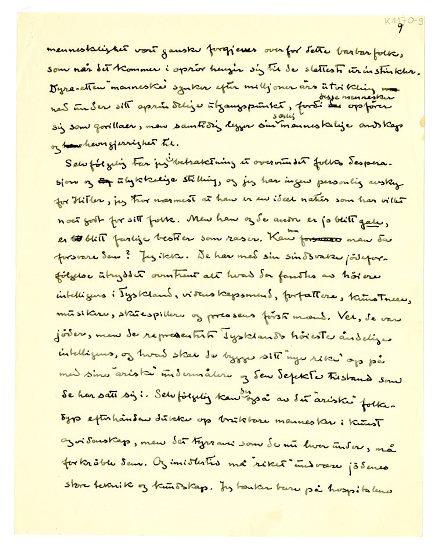 K1170-9
9
menneskelighet vort ganske forgjeves overfor dette barbarfolk,
som når det kommer i oprör hengir sig til de sletteste urinstinkter.
Dyre-ætten menneske synker efter millioner års utvikling
ned under sitt oprindelige utgangspunkt, fordi disse mennesker opförer
sig som gorillaer, men samtidig legger sin særlig menneskelige ondskap
og hevngjerrighet til.
Selvfölgelig tar jeg i betraktning et overvundet folks despera-
sjon og ulykkelige stilling, og jeg har ingen personlig avsky
for Hitler, jeg tror nærmest at han er en ideel natur som har villet
noet godt for sitt folk. Men han og de andre er jo blitt gale,
er blitt farlige bestier som raser. Kan man da
forsvare dem? Jeg ikke. De har med sin sindssvake jödefor-
fölgelse utryddet omtrent alt hvad der fandtes av höiere
intelligens i Tyskland, videnskapsmænd, forfattere, kunstnere,
musikere, skuespillere og pressens förste mænd. Vel, de var
jöder, men de representerte Tysklands höieste åndelige
intelligens, og hvad skal de bygge sitt "nye rike" op på
med sine "ariske" undermålere og den defekte tilstand som
de har satt sig i. Selvfölgelig kan der også av det "ariske" folke-
dyp efterhånden dukke op brukbare mennesker i kunst
og videnskap, men det tyranni som de nu lever under, må
forkröble dem. Og imidlertid må "riket" undvære jödenes
store teknik og kundskap. Jeg tænker bare på hospitalene